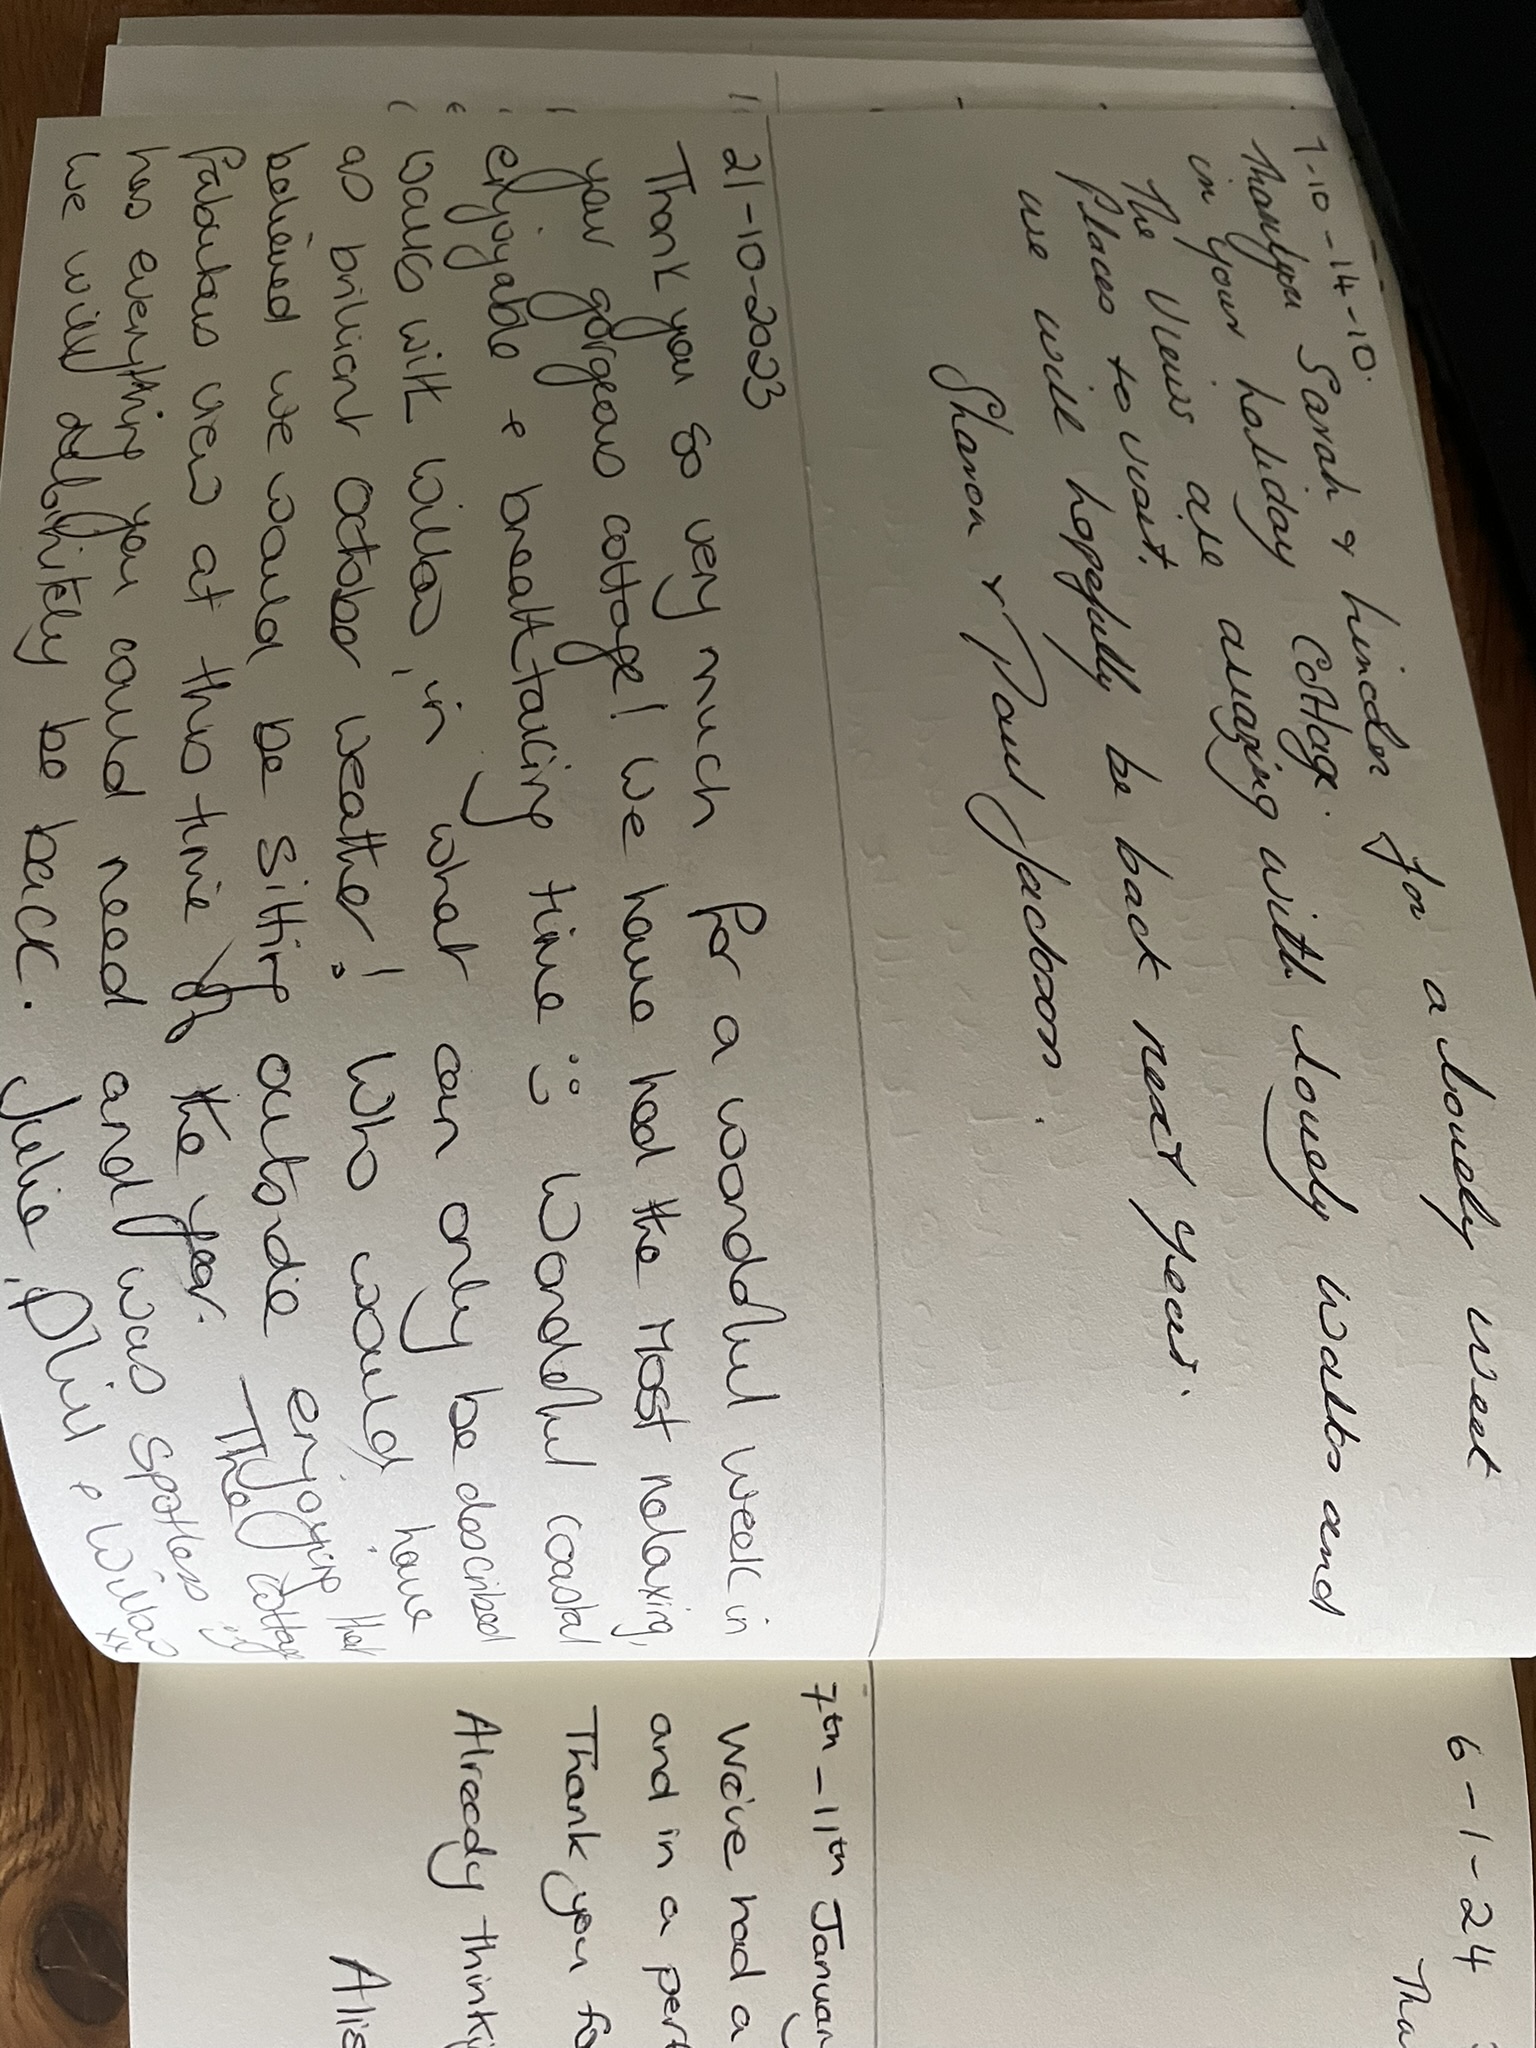 7-10-14-10.
Thankyou Sarah & Lincoln for a lovely week
in your holiday cottage.
The views are amazing with lovely walks and
places to visit.
we will hopefully be back next year.
Sharon & Paul Jackson.
21-10-2023
Thank you so very much for a wonderful week in
your gorgeous cottage! We have had the most relaxing,
enjoyable + breathtaking time :) Wonderful coastal
walks with Willow, in what can only be described
as brilliant October weather! Who would have
believed we would be sitting outside enjoying that
fabulous view at this time of the year. The cottage
has everything you could need and was spotless :)
we will definitely be back. Julie, Phil + Willow xx
6-1-24
Tha
7th - 11th January
We've had a
and in a perf
Thank you fo
Already thinki
Alis